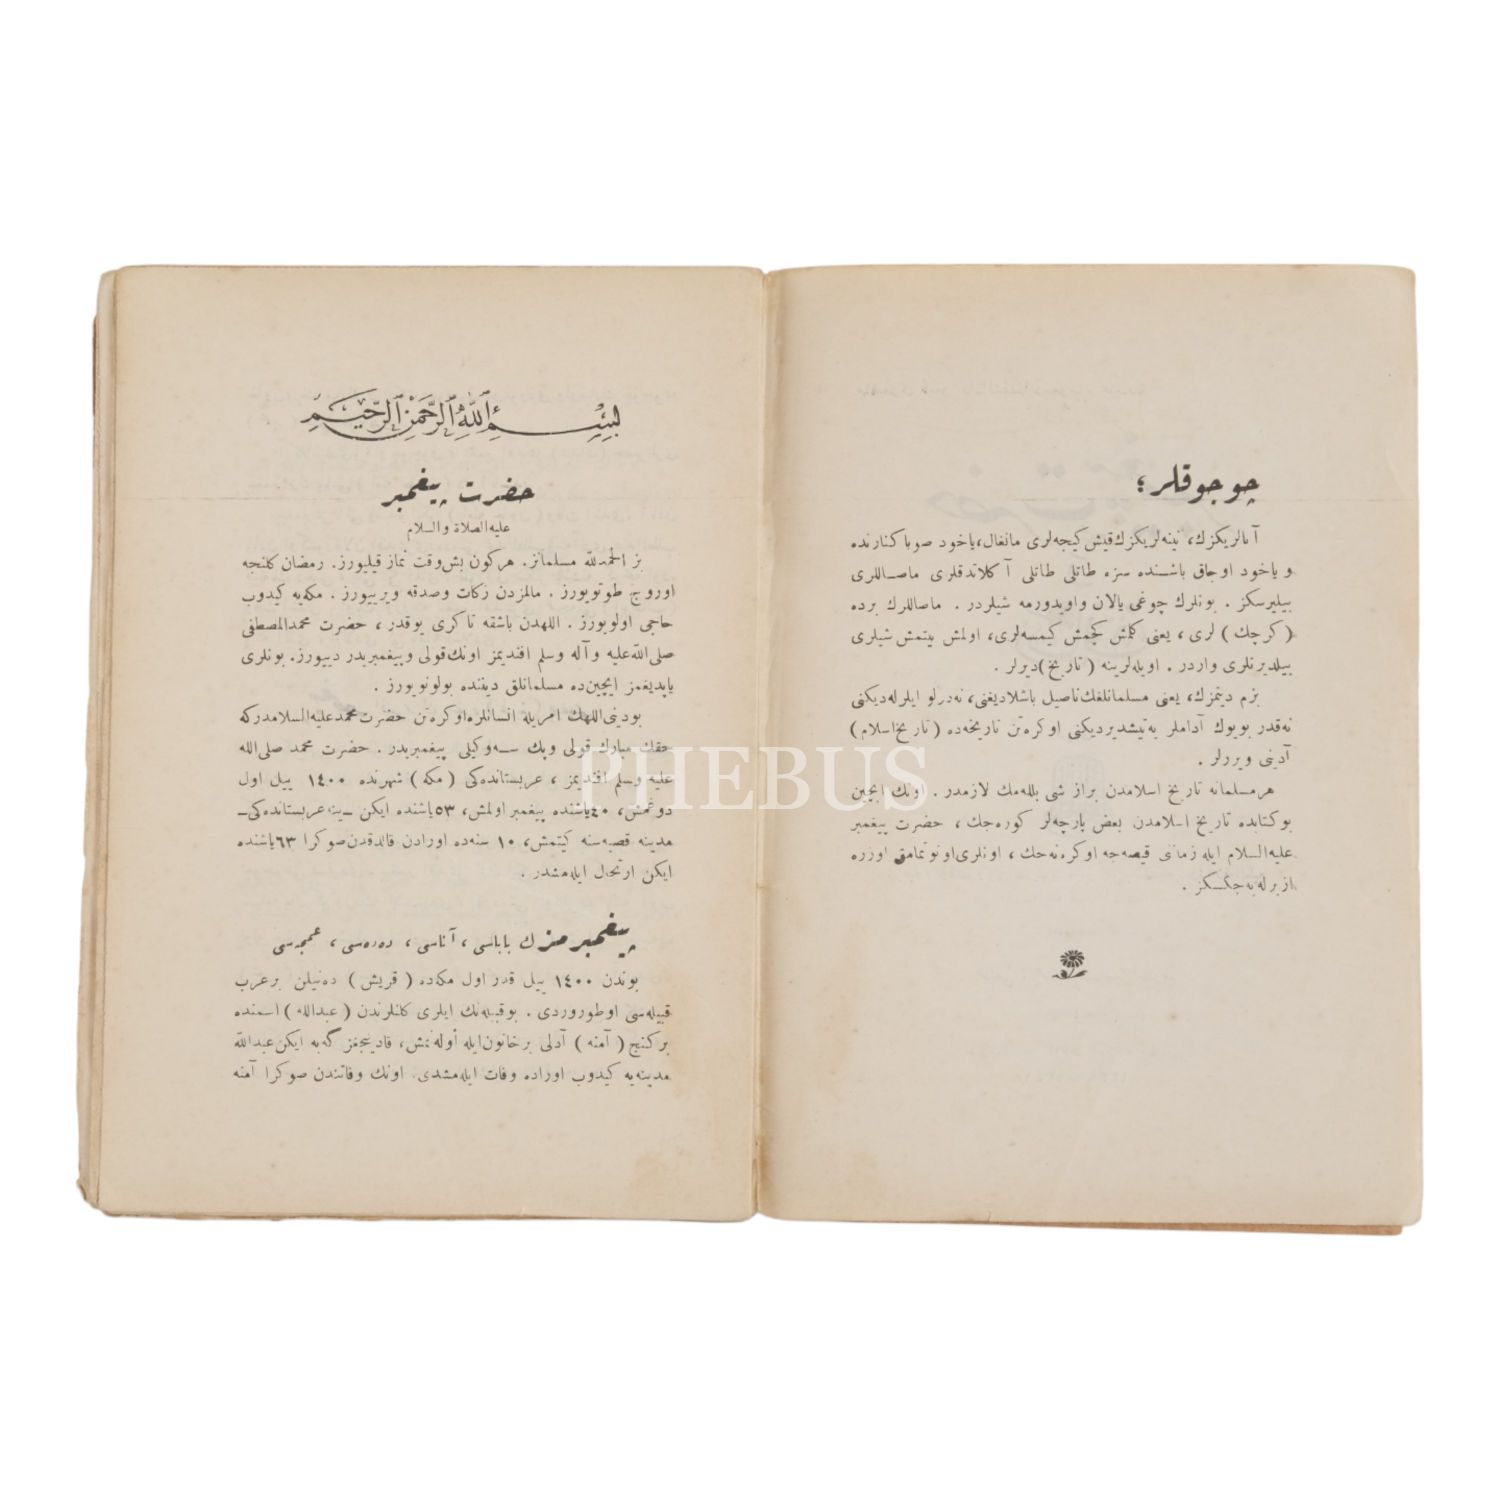 چوجوقلر؛
آنالریکزك، نینه‌لریکزك قیش کیجه‌لری مانغال، یاخود صوبا کنارنده
ویاخود اوجاق باشنده سزه طاتلی طاتلی آکلاتدقلری ماصاللری
بیلیرسکز . بونلرك چوغی یالان واویدورمه شیلردر . ماصاللرك برده
(کرچك) لری ، یعنی کلمش کچمش کیمسه‌لری، اولمش بیتمش شیلری
بیلدیرنلری واردر . اویله‌لرینه (تاریخ) دیرلر .
بزم دینمزك، یعنی مسلمانلغك ناصیل باشلادیغنی، نه‌درلو ایلرله‌دیکنی
نه‌قدر بویوك آداملر یه‌تیشدیردیکنی اوکره‌تن تاریخه‌ده (تاریخ اسلام)
آدینی ویررلر .
هر مسلمانه تاریخ اسلامدن براز شی بلله‌مك لازمدر . اونك ایچین
بوکتابده تاریخ اسلامدن بعض پارچه‌لر کوره‌جك ، حضرت پیغمبر
علیه‌السلام ایله زمانی قیصه‌جه اوکره‌نه‌جك ، اونلری اونوتمامق اوزره
ازبرله‌یه‌جکسکز .
بسم الله الرحمن الرحیم
حضرت پیغمبر
علیه‌الصلاة والسلام
بز الحمدلله مسلمانز. هرکون بش‌وقت نماز قیلیورز. رمضان کلنجه
اوروچ طوتویورز . مالمزدن زکات وصدقه ویرییورز . مکه‌یه کیدوب
حاجی اولویورز . اللهدن باشقه تاکری یوقدر ، حضرت محمدالمصطفی
صلی‌الله‌علیه و آله وسلم افندیمز اونك‌قولی وپیغمبریدر دییورز. بونلری
یاپدیغمز ایچین‌ده مسلمانلق دیننده بولونویورز .
بودینی‌اللهك امریله انسانلره‌اوکره‌تن حضرت‌محمدعلیه‌السلامدرکه
حقك مبارك قولی وپك سه‌وکیلی پیغمبریدر . حضرت محمد صلی‌الله
علیه وسلم افندیمز ، عربستانده‌کی (مکه) شهرنده ۱٤۰۰ ییل اول
دوغمش، ٤۰یاشنده پیغمبر اولمش، ٥۳یاشنده ایکن ـ ینه عربستانده‌کی ـ
مدینه قصبه‌سنه کیتمش، ۱۰ سنه‌ده اورادن قالدقدن‌صوکرا ٦۳یاشنده
ایکن ارتحال ایله‌مشدر .
پیغمبرمزك باباسی ، آناسی ، ده‌ده‌سی ، عمجه‌سی
بوندن ۱٤۰۰ ییل قدر اول مکه‌ده (قریش) ده‌نیلن برعرب
قبیله‌سی اوطوروردی . بوقبیله‌نك ایلری کلنلرندن (عبدالله) اسمنده
برکنج (آمنه) آدلی برخاتون‌ایله أوله‌نمش، قادینجغز گه‌به ایکن‌عبدالله
مدینه‌یه کیدوب اوراده وفات ایله‌مشدی. اونك وفاتندن صوکرا آمنه
PHEBUS